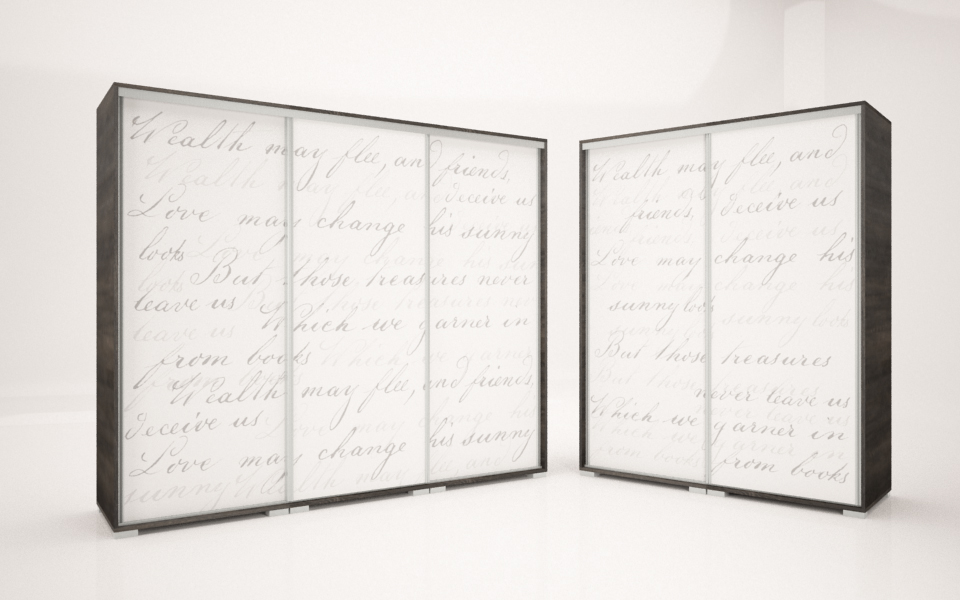 Wealth may flee, and friends,
deceive us
Love may change his sunny
looks
But those treasures never
leave us
Which we garner in
from books
Wealth may flee, and friends,
deceive us
Love may change his sunny
sunny
Wealth may flee, and
friends, deceive us
Love may change his
sunny look
But those treasures
never leave us
Which we garner in
from books